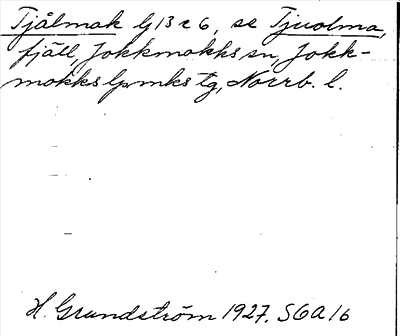 Tjålmak lj 13 r 6, se Tjuolma,
fjäll, Jokkmokks sn, Jokk-
mokks lpmks tg, Norrb. l.
H. Grundström 1927. S6A16